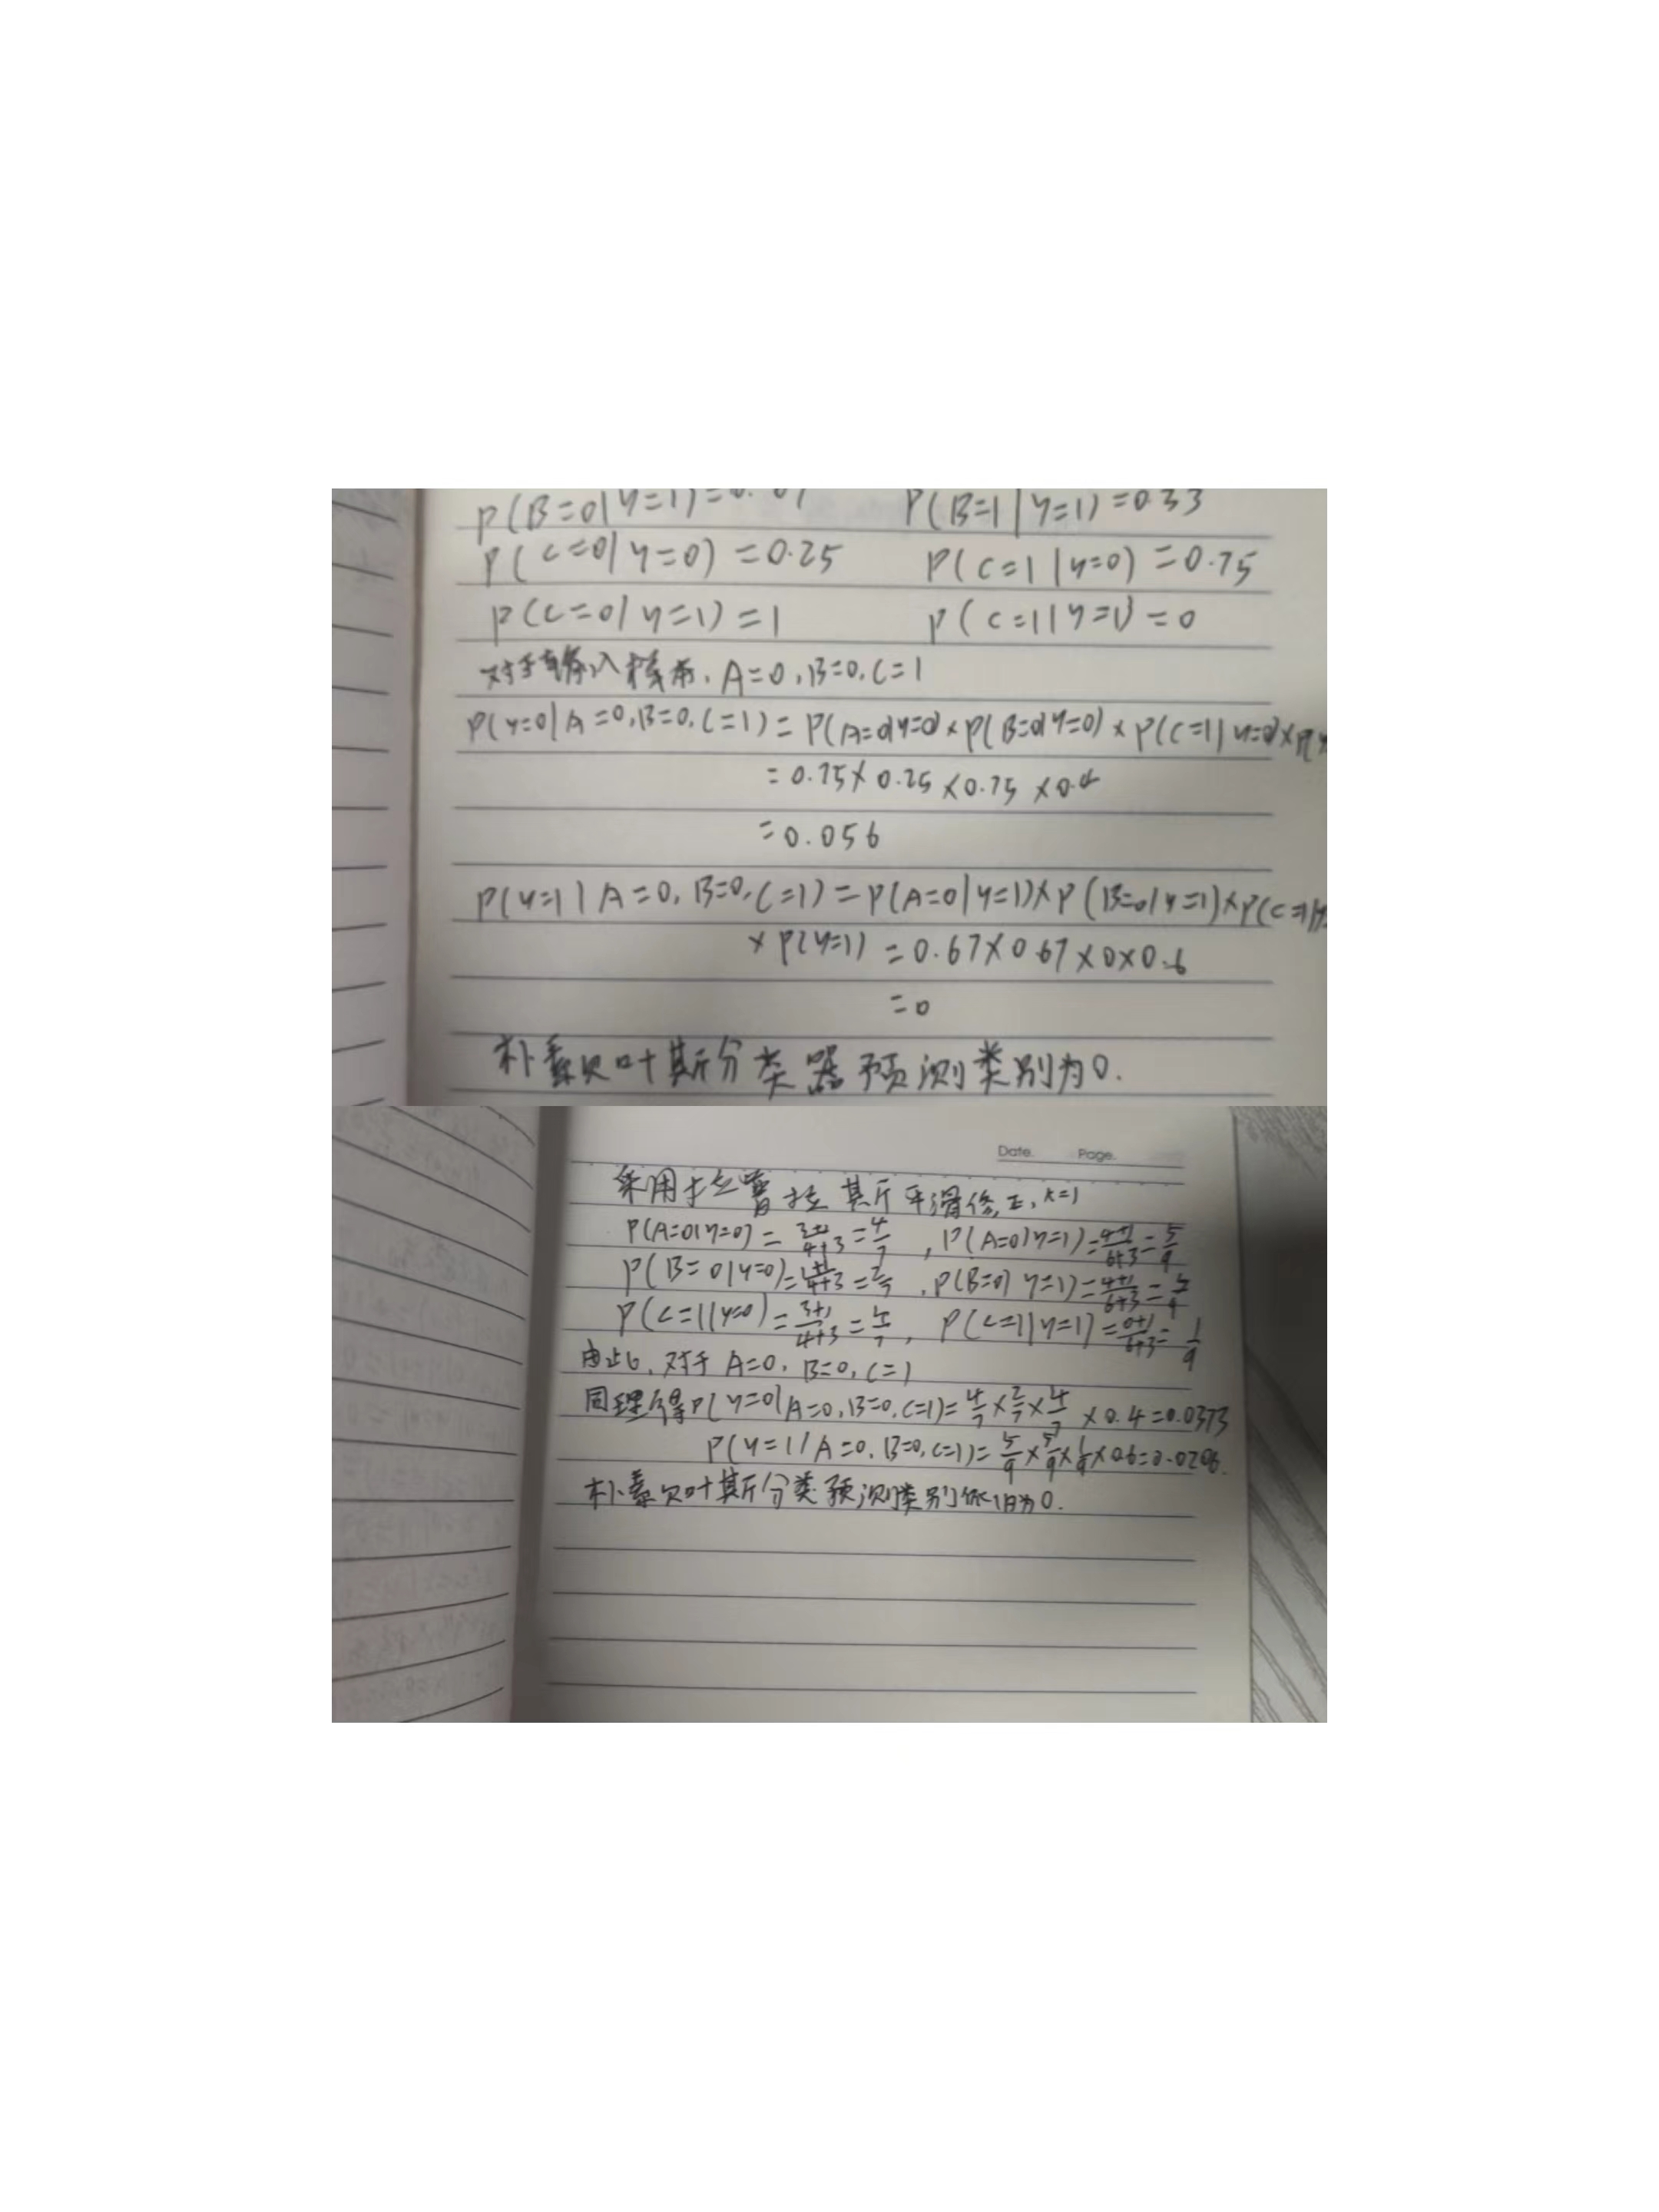 P(B=0|y=1)=0.67 P(B=1|y=1)=0.33
P(C=0|y=0)=0.25 P(C=1|y=0)=0.75
P(C=0|y=1)=1 P(C=1|y=1)=0
对于输入样本, A=0, B=0, C=1
P(y=0|A=0,B=0,C=1)=P(A=0|y=0)×P(B=0|y=0)×P(C=1|y=0)×P(y
=0.75×0.25×0.75×0.4
=0.056
P(y=1|A=0,B=0,C=1)=P(A=0|y=1)×P(B=0|y=1)×P(C=1|y
×P(y=1)=0.67×0.67×0×0.6
=0
朴素贝叶斯分类器预测类别为0.
Date. Page.
采用拉普拉斯平滑修正, k=1
P(A=0|y=0)=3+1/4+3=4/7, P(A=0|y=1)=4+1/6+3=5/9
P(B=0|y=0)=1+1/4+3=2/7, P(B=0|y=1)=4+1/6+3=5/9
P(C=1|y=0)=3+1/4+3=4/7, P(C=1|y=1)=0+1/6+3=1/9
由此, 对于 A=0, B=0, C=1
同理得P(y=0|A=0,B=0,C=1)=4/7×2/7×4/7×0.4=0.0373
P(y=1|A=0,B=0,C=1)=5/9×5/9×1/9×0.6=0.0206.
朴素贝叶斯分类预测类别依旧为0.